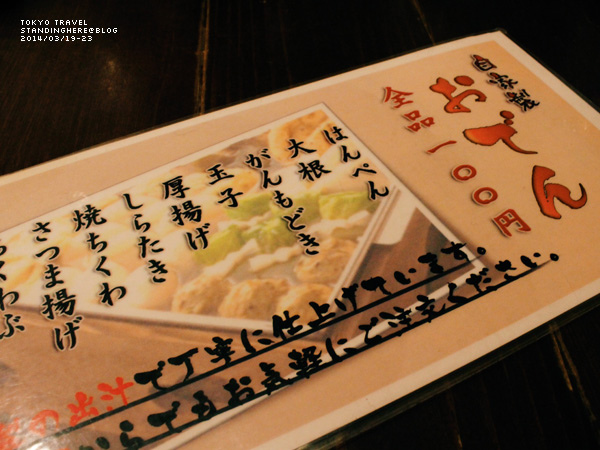 TOKYO TRAVEL
STANDINGHERE@BLOG
2014/03/19-23
自家製
おでん
全品一〇〇円
はんぺん
大根
がんもどき
玉子
厚揚げ
しらたき
焼ちくわ
さつま揚げ
くわぶ
の出汁で丁寧に仕上げています。
からでもお気軽にご注文ください。